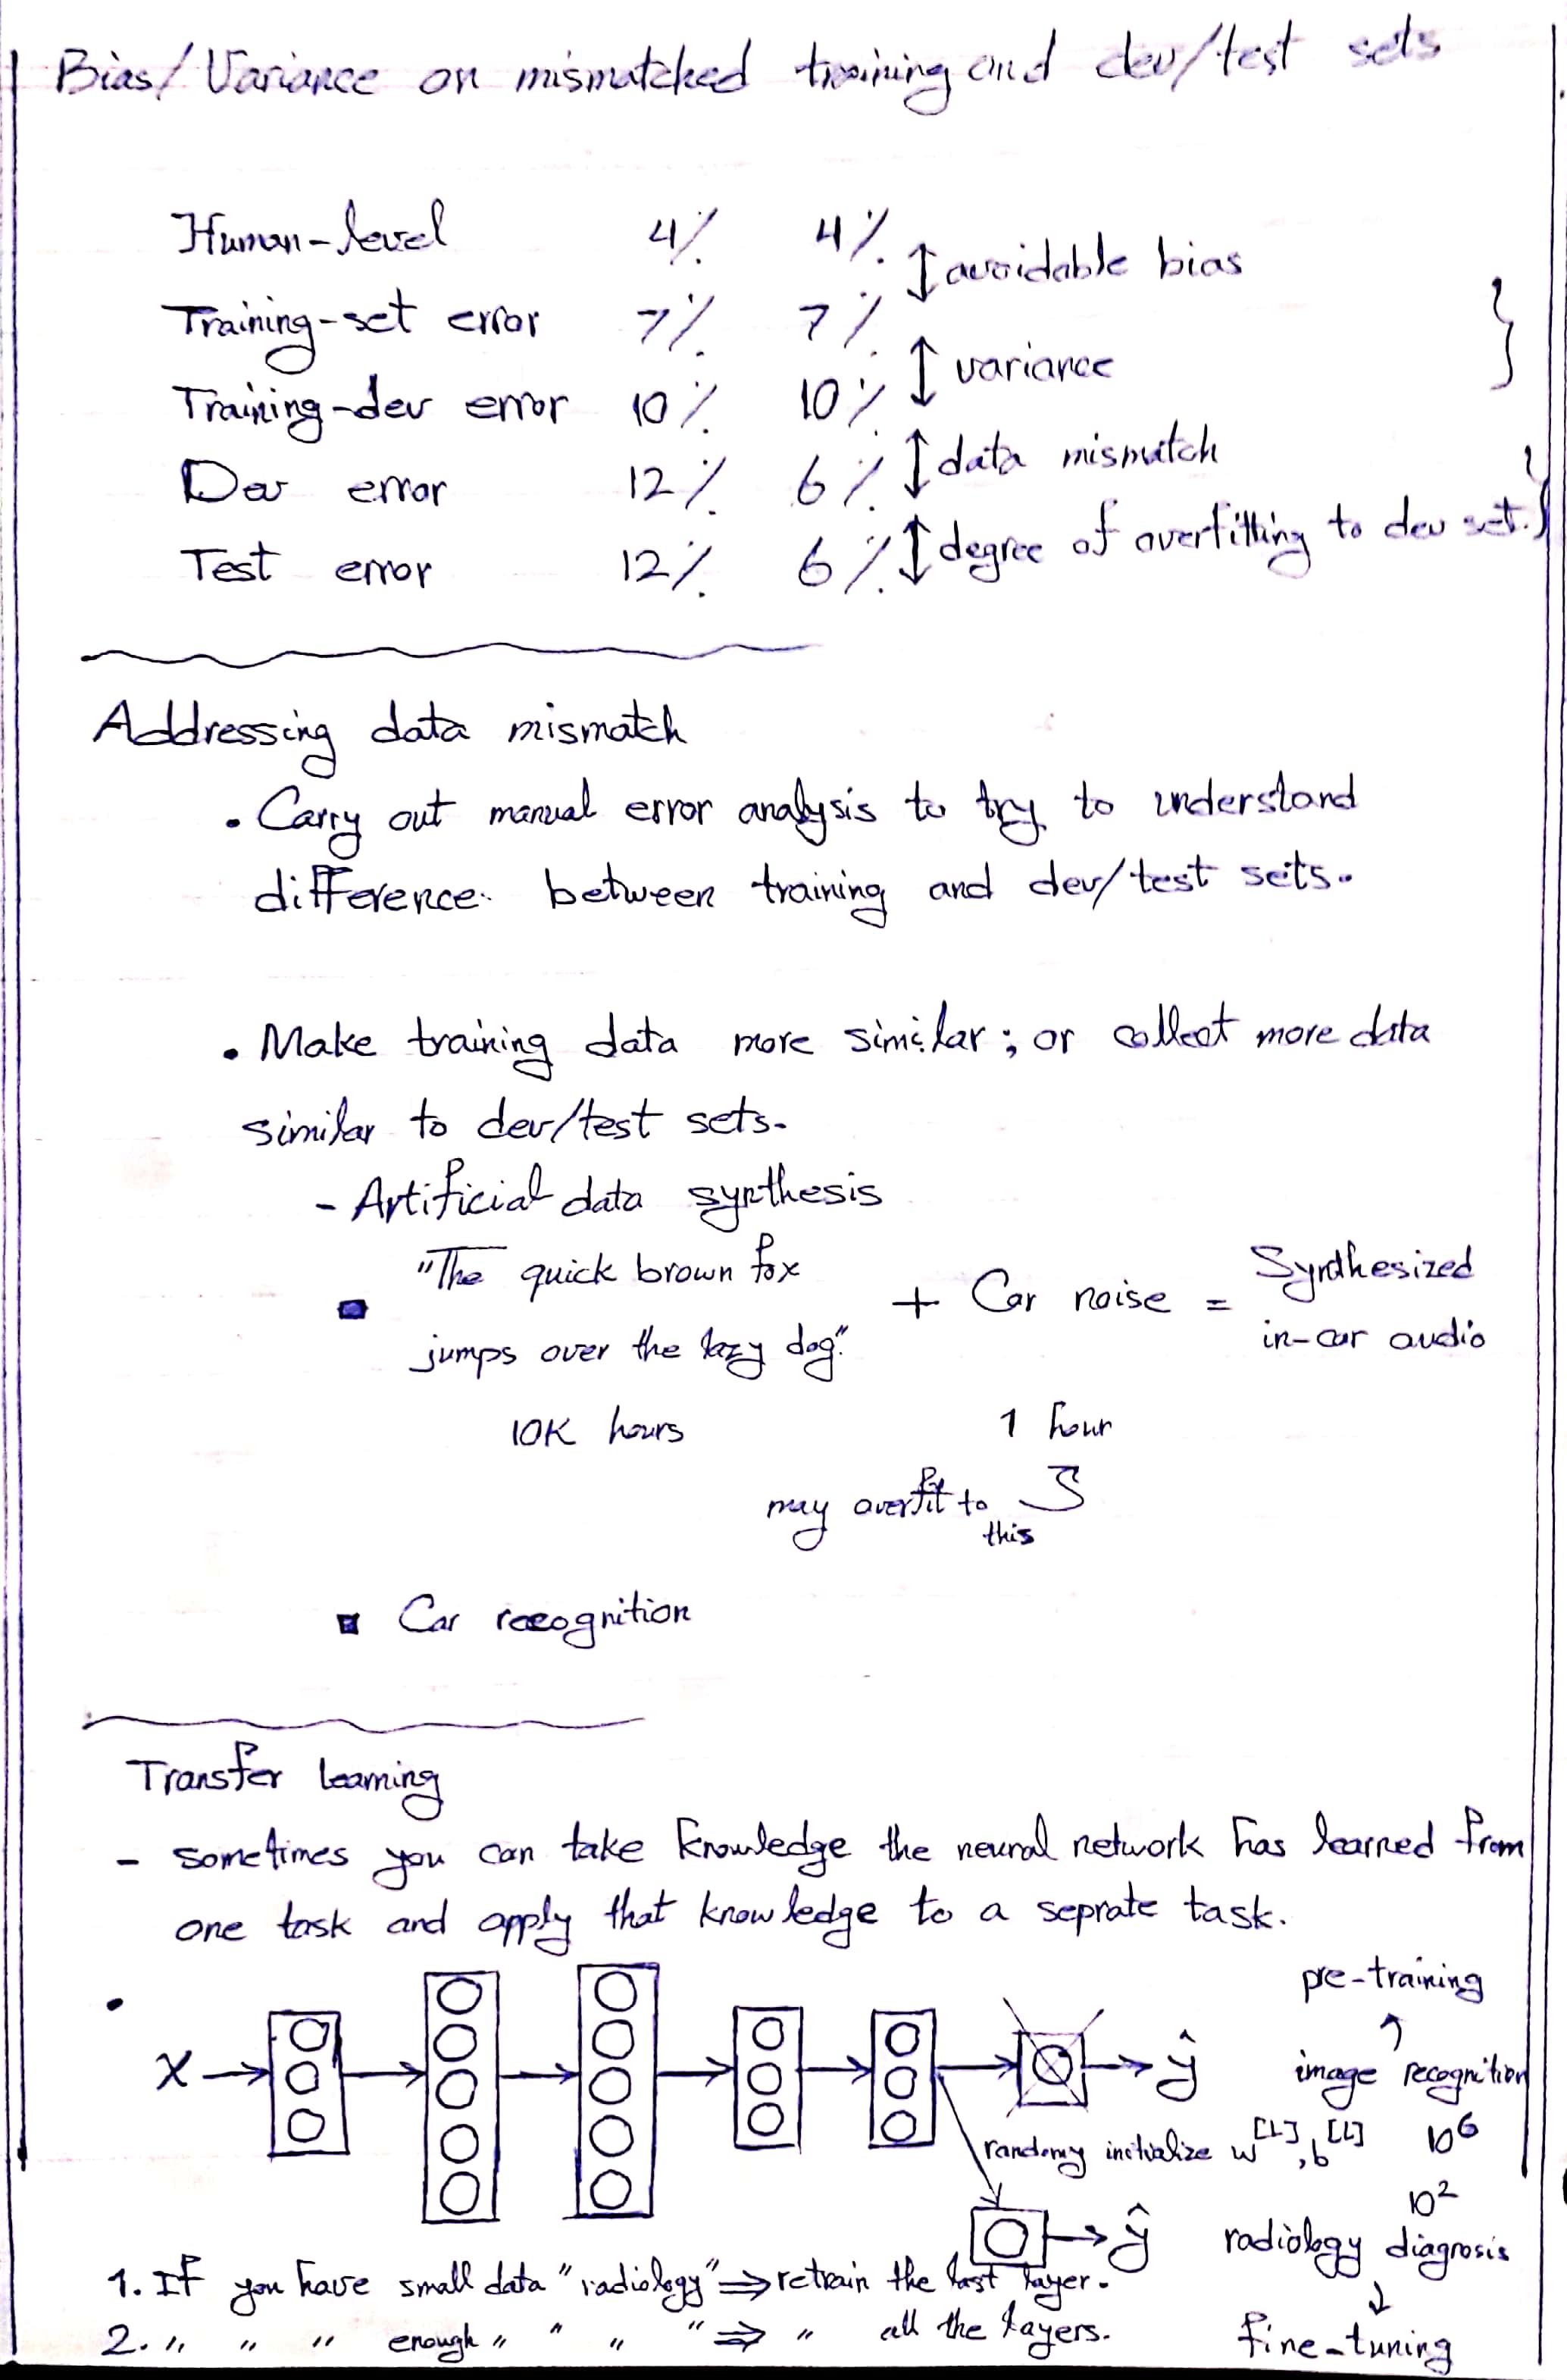 Bias/Variance on mismatched training and dev/test sets
Human-level 4% 4% avoidable bias
Training-set error 7% 7%
variance
Training-dev error 10% 10%
data mismatch
Dev error 12% 6%
degree of overfitting to dev set.
Test error 12% 6%
Addressing data mismatch
• Carry out manual error analysis to try to understand
difference between training and dev/test sets.
• Make training data more similar; or collect more data
similar to dev/test sets.
- Artificial data synthesis
"The quick brown fox
jumps over the lazy dog." + Car noise = Synthesized
in-car audio
10K hours 1 hour
may overfit to
this
▪ Car recognition
Transfer learning
- sometimes you can take knowledge the neural network has learned from
one task and apply that knowledge to a seprate task.
pre-training
x ŷ image recognition
randomy initialize w[L], b[L] 10⁶
10²
ŷ radiology diagnosis
1. If you have small data "radiology" ⇒ retrain the last layer.
2. " " " enough " " " " ⇒ " all the layers.
fine-tuning